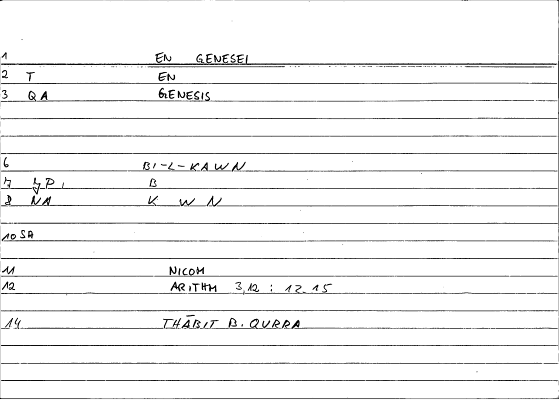 1 EN GENESEI
2 T EN
3 QA GENESIS
6 BI-L-KAWN
7 P, B
8 NA K W N
10 SA
11 NICOM
12 ARITHM 3,12 : 12.15
14 THĀBIT B. QURRA